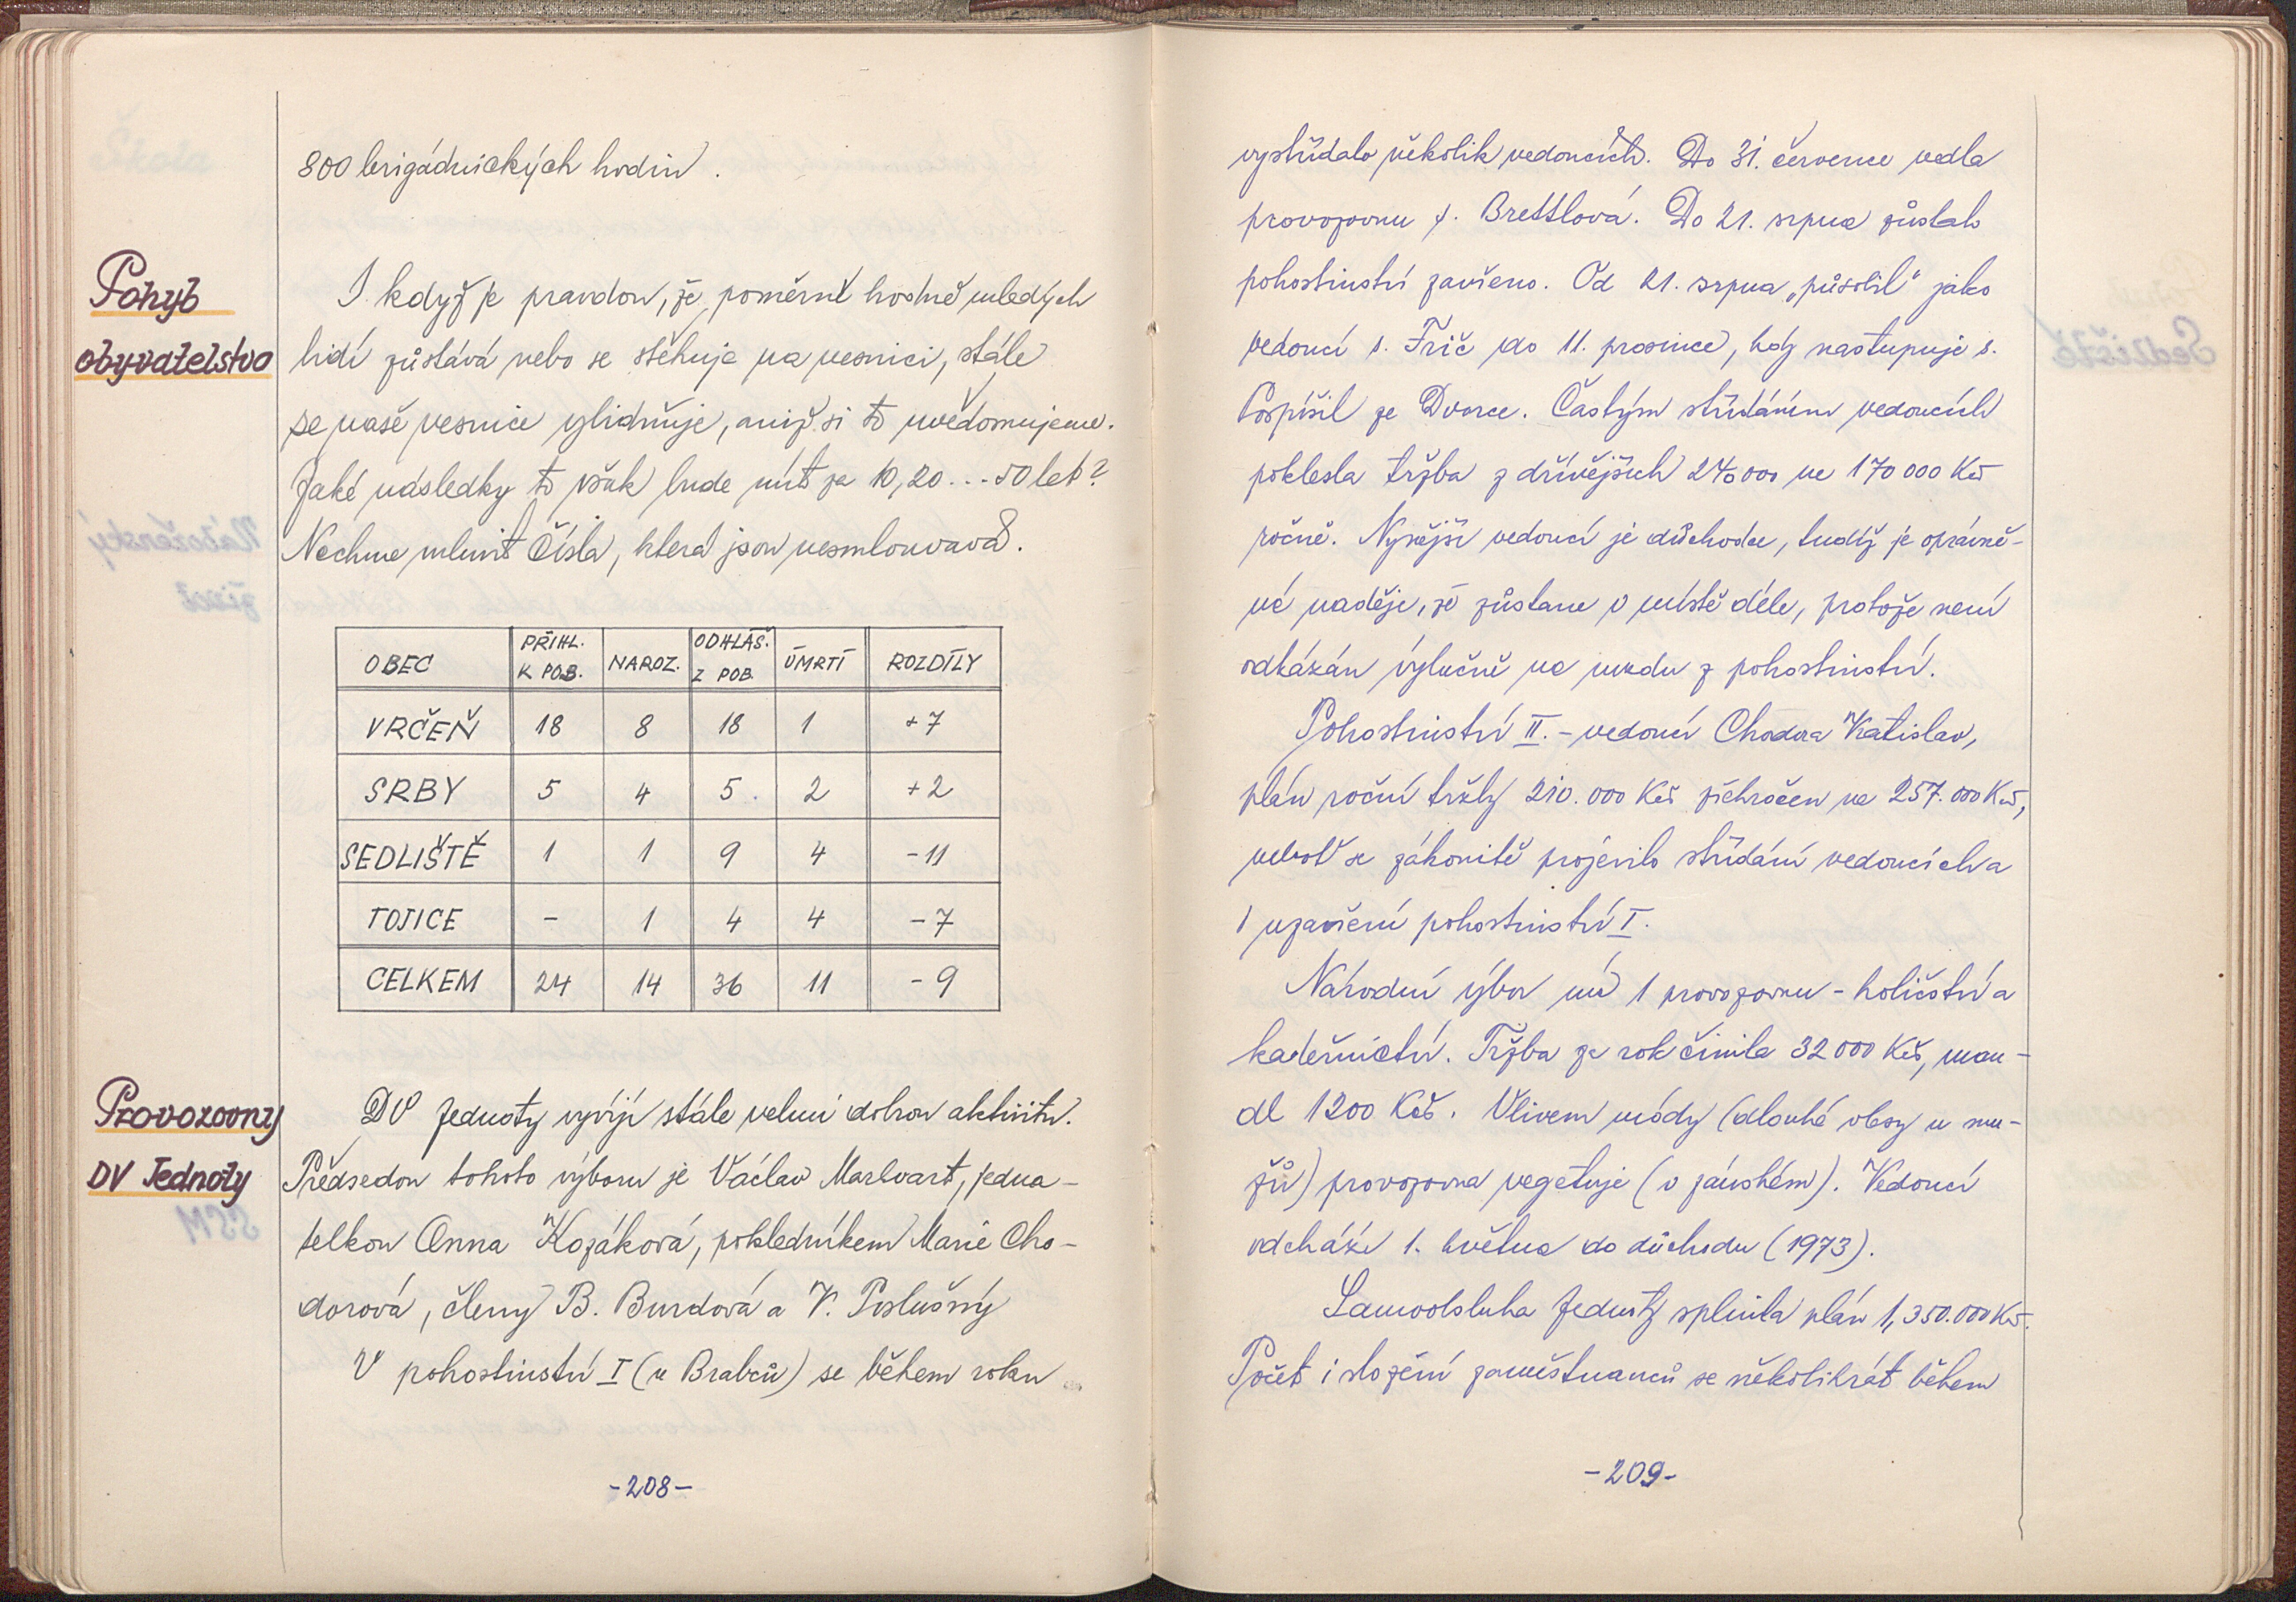 800 brigádnických hodin.
Pohyb
obyvatelstva
I když je pravdou, že poměrně hodně mladých
lidí zůstává nebo se stěhuje na vesnici, stále
se naše vesnice vylidňuje, aniž si to uvědomujeme.
Jaké následky to však bude mít za 10, 20 ... 50 let?
Nechme mluvit čísla, která jsou nesmlouvavá.
OBEC PŘIHL. K POB. NAROZ. ODHLÁŠ. Z POB. ÚMRTÍ ROZDÍLY
VRČEŇ 18 8 18 1 +7
SRBY 5 4 5 2 +2
SEDLIŠTĚ 1 1 9 4 -11
TOJICE - 1 4 4 -7
CELKEM 24 14 36 11 -9
Provozovny
DV Jednoty
DV Jednoty vyvíjí stále velmi dobrou aktivitu.
Předsedou tohoto výboru je Václav Markvart, jedna-
telkou Anna Kozáková, pokladníkem Marie Cho-
dorová, členy B. Burdová a V. Poslušný
V pohostinství I (u Brabců) se během roku
-208-
vystřídalo několik vedoucích. Do 31. července vedla
provozovnu s. Brettlová. Do 21. srpna zůstalo
pohostinství zavřeno. Od 21. srpna „působil" jako
vedoucí s. Frič do 11. prosince, kdy nastupuje s.
Pospíšil ze Dvorce. Častým střídáním vedoucích
poklesla tržba z dřívějších 240 000 na 170 000 Kčs
ročně. Nynější vedoucí je důchodce, tudíž je oprávně-
ná naděje, že zůstane v místě déle, protože není
odkázán výlučně na mzdu z pohostinství.
Pohostinství II. - vedoucí Chodora Vratislav,
plán roční tržby 210.000 Kčs překročen na 257.000 Kčs,
neboť se zákonitě projevilo střídání vedoucích a
i uzavření pohostinství I.
Národní výbor má 1 provozovnu - holičství a
kadeřnictví. Tržba za rok činila 32 000 Kčs, man-
dl 1200 Kčs. Vlivem módy (dlouhé vlasy u mu-
žů) provozovna vegetuje (v pánském). Vedoucí
odchází 1. května do důchodu (1973).
Samoobsluha Jednoty splnila plán 1,350.000 Kčs.
Počet i složení zaměstnanců se několikrát během
-209-